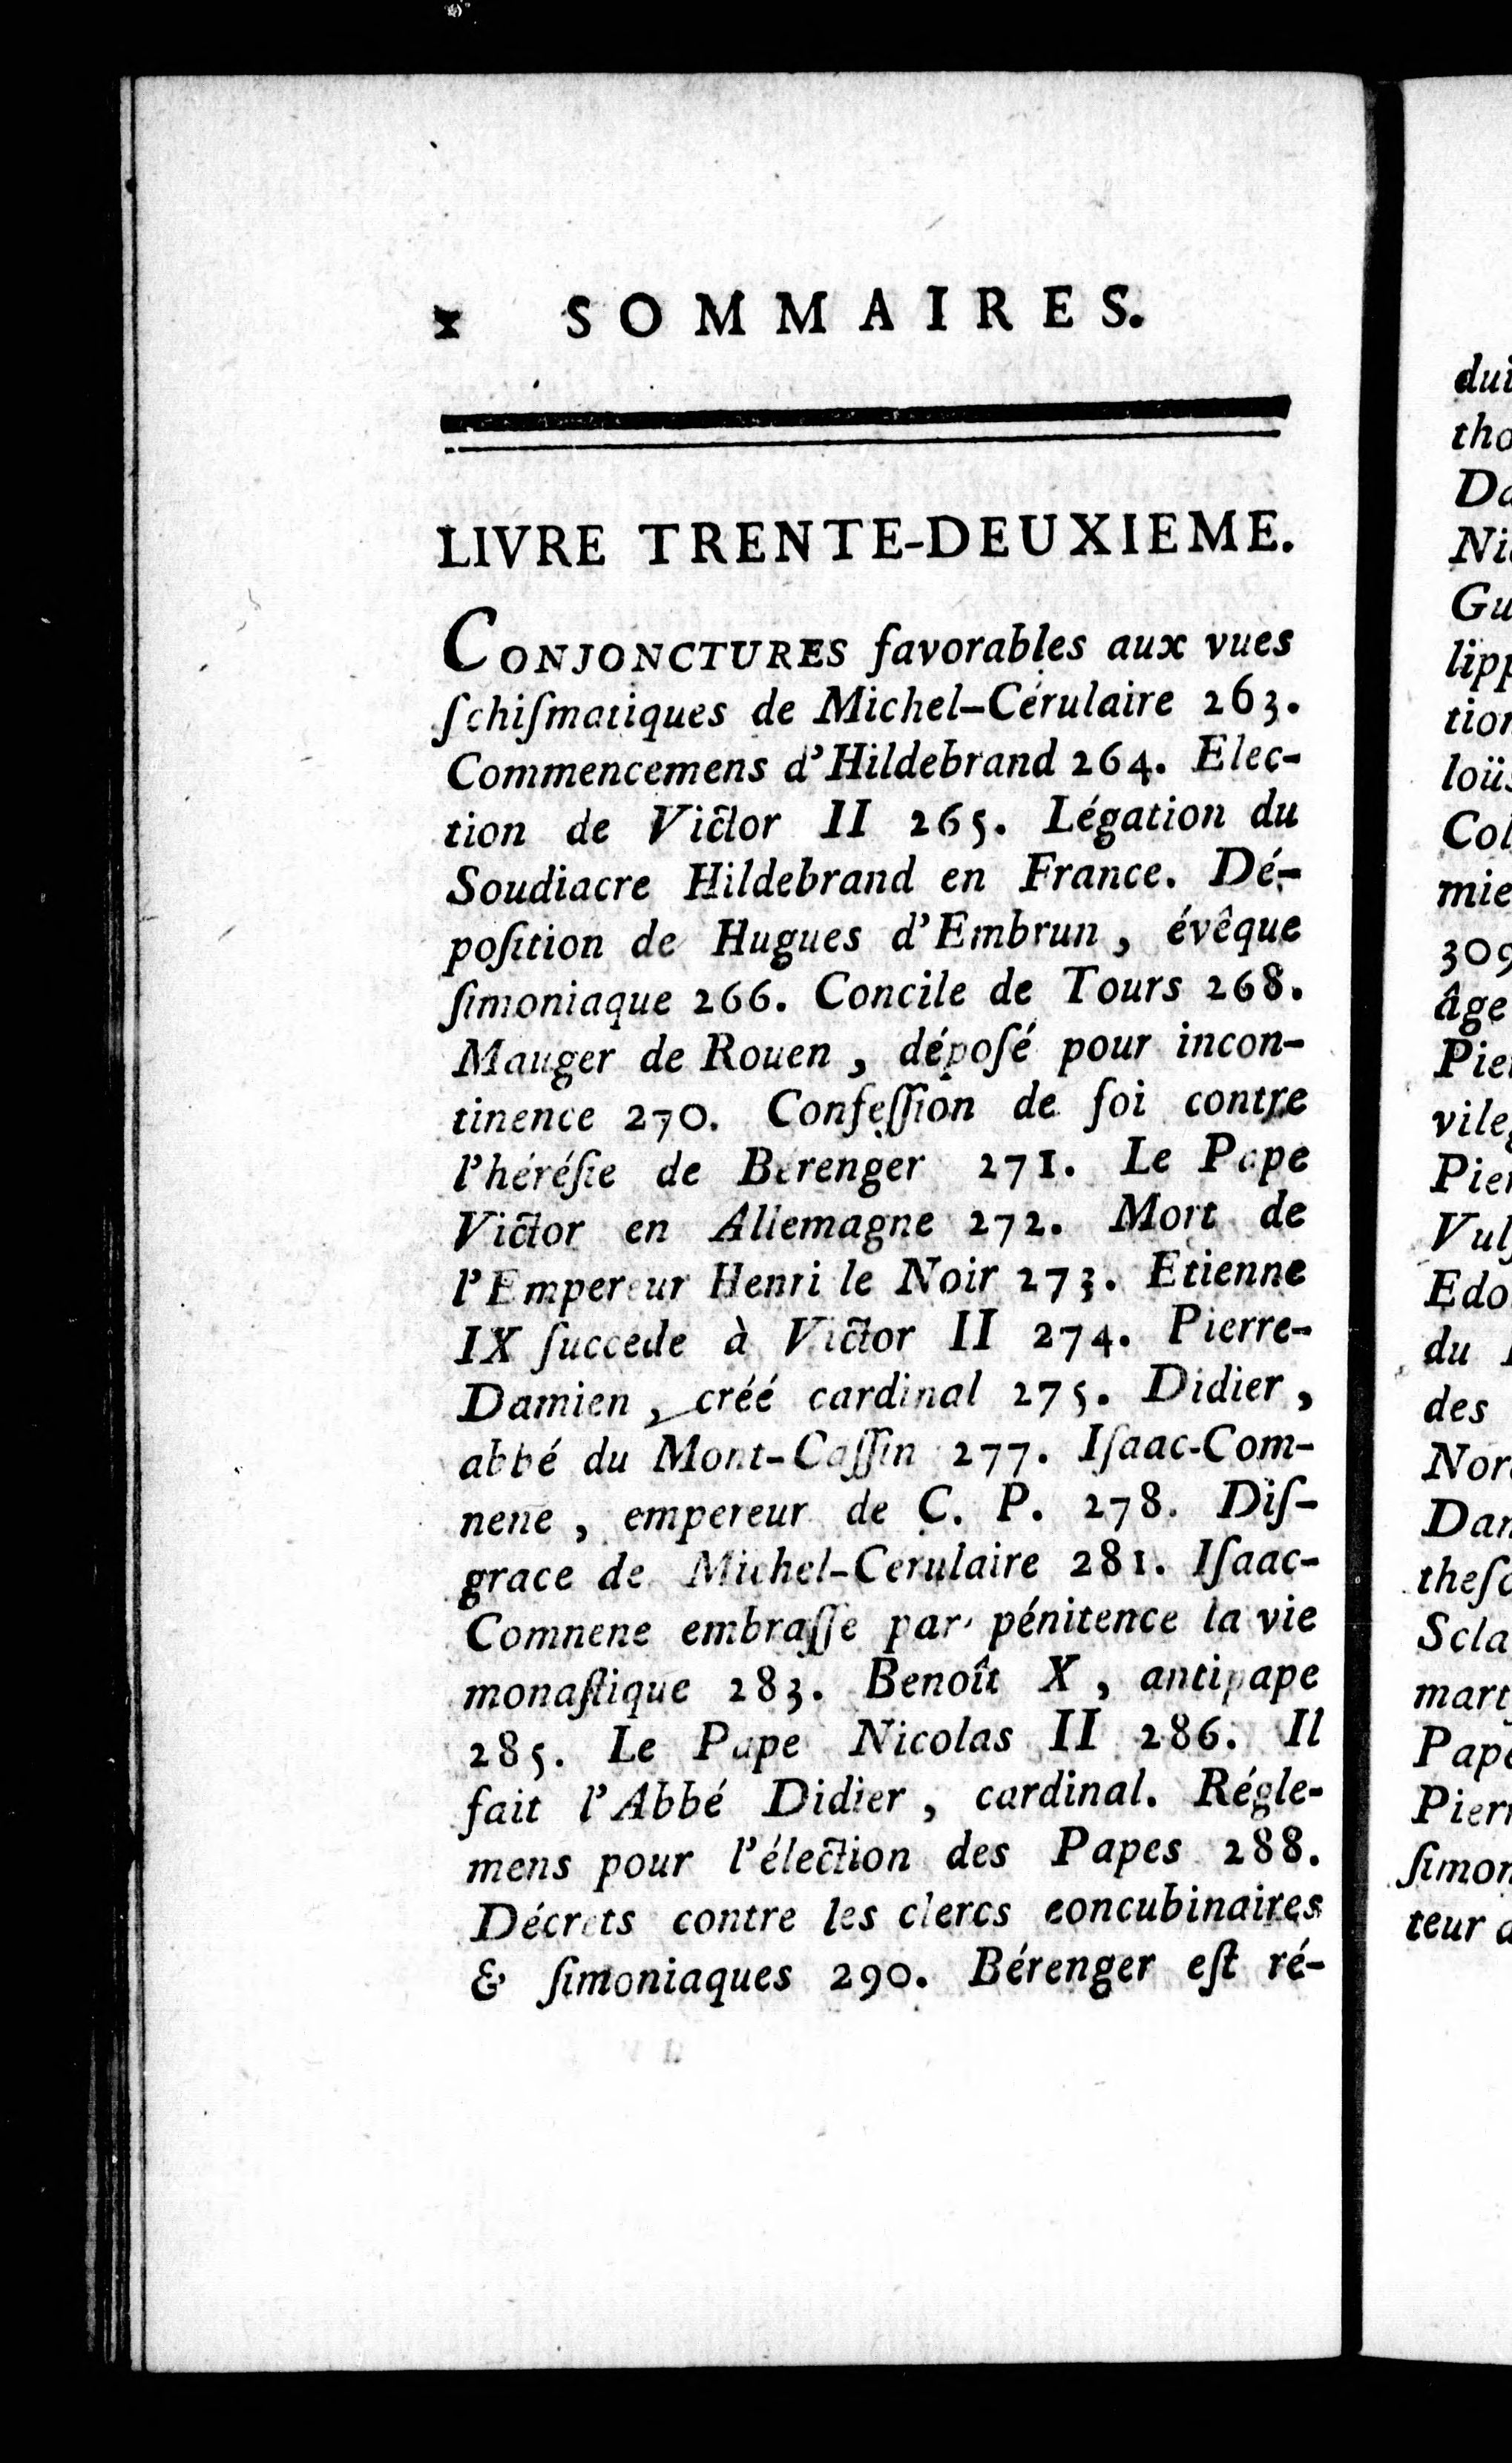 x SOMMAIRES.
LIVRE TRENTE-DEUXIEME.
CONJONCTURES favorables aux vues
ſchiſmatiques de Michel-Cérulaire 263.
Commencemens d'Hildebrand 264. Elec-
tion de Victor II 265. Légation du
Soudiacre Hildebrand en France. Dé-
poſition de Hugues d'Embrun, évêque
ſimoniaque 266. Concile de Tours 268.
Mauger de Rouen, dépoſé pour incon-
tinence 270. Confeſſion de foi contre
l'héréſie de Bérenger 271. Le Pape
Victor en Allemagne 272. Mort de
l'Empereur Henri le Noir 273. Etienne
IX ſuccede à Victor II 274. Pierre-
Damien, créé cardinal 275. Didier,
abbé du Mont-Caſſin 277. Iſaac-Com-
nene, empereur de C. P. 278. Diſ-
grace de Michel-Cerulaire 281. Iſaac-
Comnene embraſſe par pénitence la vie
monaſtique 283. Benoît X, antipape
285. Le Pape Nicolas II 286. Il
fait l'Abbé Didier, cardinal. Régle-
mens pour l'élection des Papes 288.
Décrets contre les clercs concubinaires
& ſimoniaques 290. Bérenger eſt ré-
dui
tho
Da
Ni
Gu
lipp
tion
loüs
Col
mie
309
âge
Pie
vile
Pie
Vul
Edo
du
des
Nor
Dan
theſ
Scla
mart
Pap
Pier
ſimon
teur